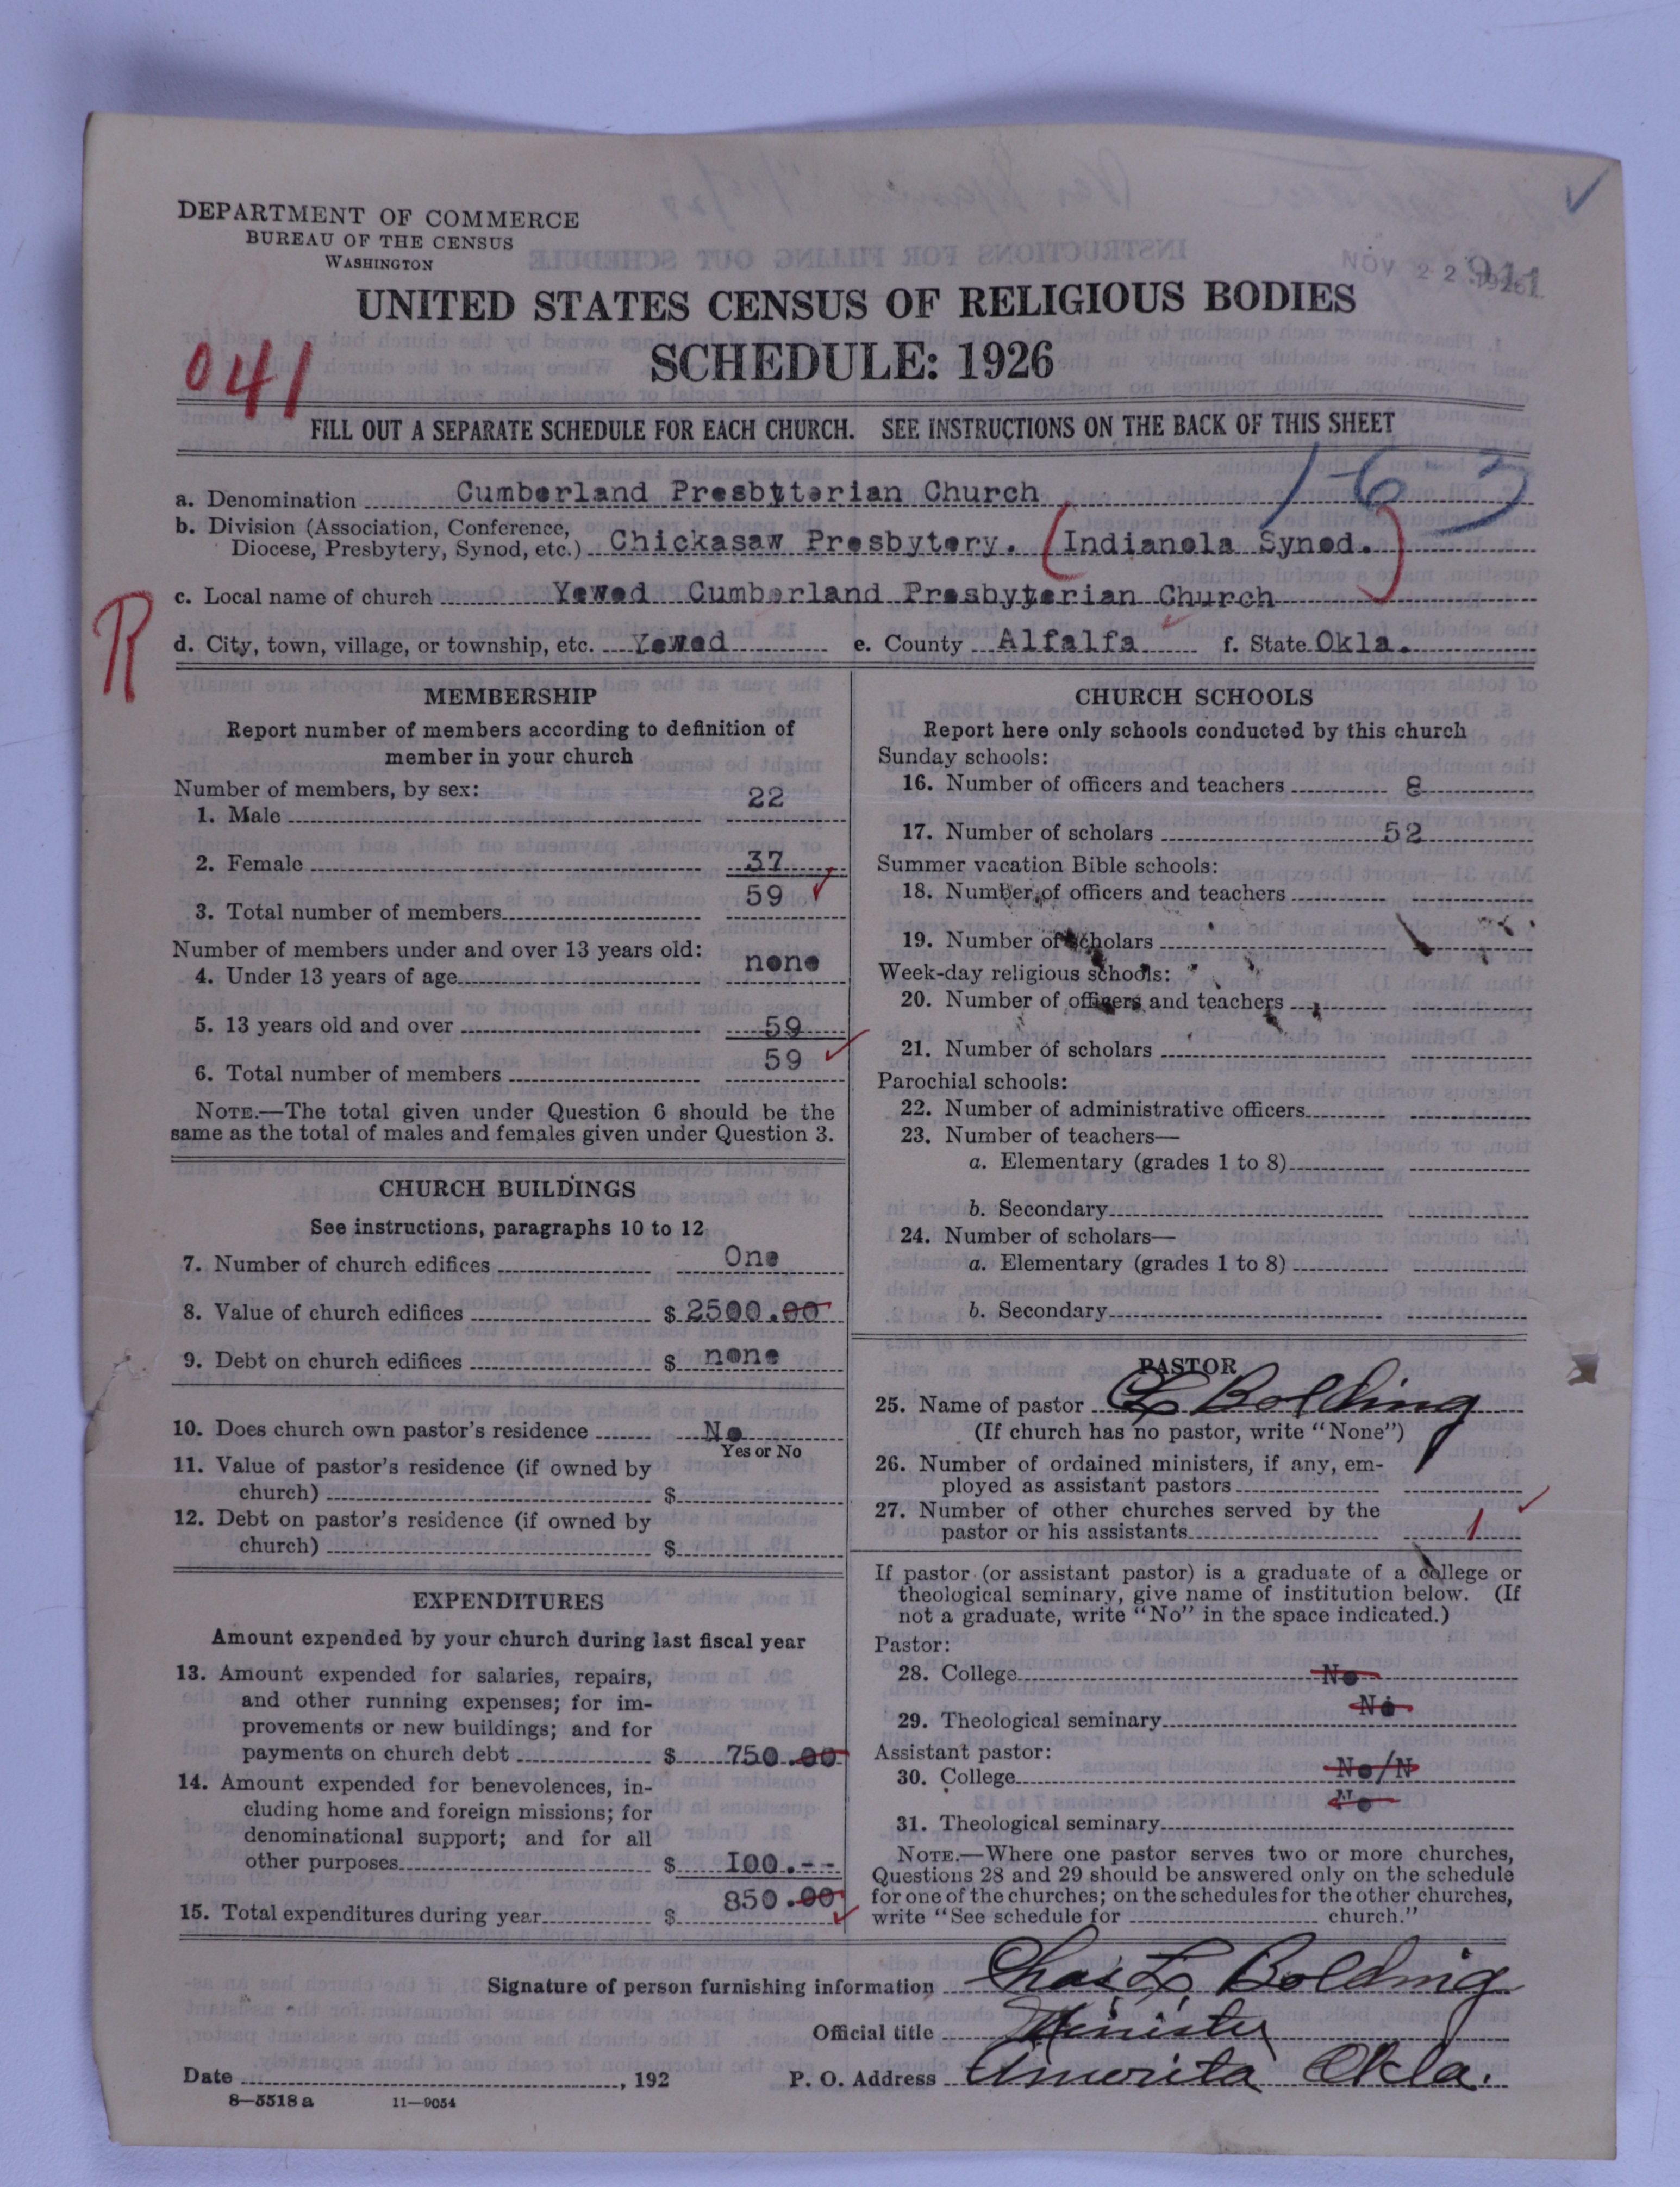 DEPARTMENT OF COMMERCE
BUREAU OF THE CENSUS
WASHINGTON
NOV 22 1926
911
UNITED STATES CENSUS OF RELIGIOUS BODIES
SCHEDULE: 1926
041
FILL OUT A SEPARATE SCHEDULE FOR EACH CHURCH. SEE INSTRUCTIONS ON THE BACK OF THIS SHEET
1-6-3
a. Denomination Cumberland Presbyterian Church
b. Division (Association, Conference,
Diocese, Presbytery, Synod, etc.) Chickasaw Presbytery. (Indianola Synod.)
R
c. Local name of church Yewed Cumberland Presbyterian Church
d. City, town, village, or township, etc. Yewed e. County Alfalfa f. State Okla.
MEMBERSHIP
Report number of members according to definition of
member in your church
Number of members, by sex:
1. Male 22
2. Female 37
3. Total number of members 59
Number of members under and over 13 years old:
4. Under 13 years of age none
5. 13 years old and over 59
6. Total number of members 59
NOTE.—The total given under Question 6 should be the
same as the total of males and females given under Question 3.
CHURCH BUILDINGS
See instructions, paragraphs 10 to 12
7. Number of church edifices One
8. Value of church edifices $ 2500.00
9. Debt on church edifices $ none
10. Does church own pastor's residence No
Yes or No
11. Value of pastor's residence (if owned by
church) $
12. Debt on pastor's residence (if owned by
church) $
EXPENDITURES
Amount expended by your church during last fiscal year
13. Amount expended for salaries, repairs,
and other running expenses; for im-
provements or new buildings; and for
payments on church debt $ 750.00
14. Amount expended for benevolences, in-
cluding home and foreign missions; for
denominational support; and for all
other purposes $ 100.--
15. Total expenditures during year $ 850.00
CHURCH SCHOOLS
Report here only schools conducted by this church
Sunday schools:
16. Number of officers and teachers 8
17. Number of scholars 52
Summer vacation Bible schools:
18. Number of officers and teachers
19. Number of scholars
Week-day religious schools:
20. Number of officers and teachers
21. Number of scholars
Parochial schools:
22. Number of administrative officers
23. Number of teachers—
a. Elementary (grades 1 to 8)
b. Secondary
24. Number of scholars—
a. Elementary (grades 1 to 8)
b. Secondary
PASTOR
25. Name of pastor C L Bolding
(If church has no pastor, write "None")
26. Number of ordained ministers, if any, em-
ployed as assistant pastors
27. Number of other churches served by the
pastor or his assistants 1
If pastor (or assistant pastor) is a graduate of a college or
theological seminary, give name of institution below. (If
not a graduate, write "No" in the space indicated.)
Pastor:
28. College No
29. Theological seminary No
Assistant pastor:
30. College No/N
31. Theological seminary No
NOTE.—Where one pastor serves two or more churches,
Questions 28 and 29 should be answered only on the schedule
for one of the churches; on the schedules for the other churches,
write "See schedule for church."
Signature of person furnishing information Chas. L. Bolding
Official title Minister
Date , 192 P. O. Address Amorita Okla.
8—5518 a 11—9054